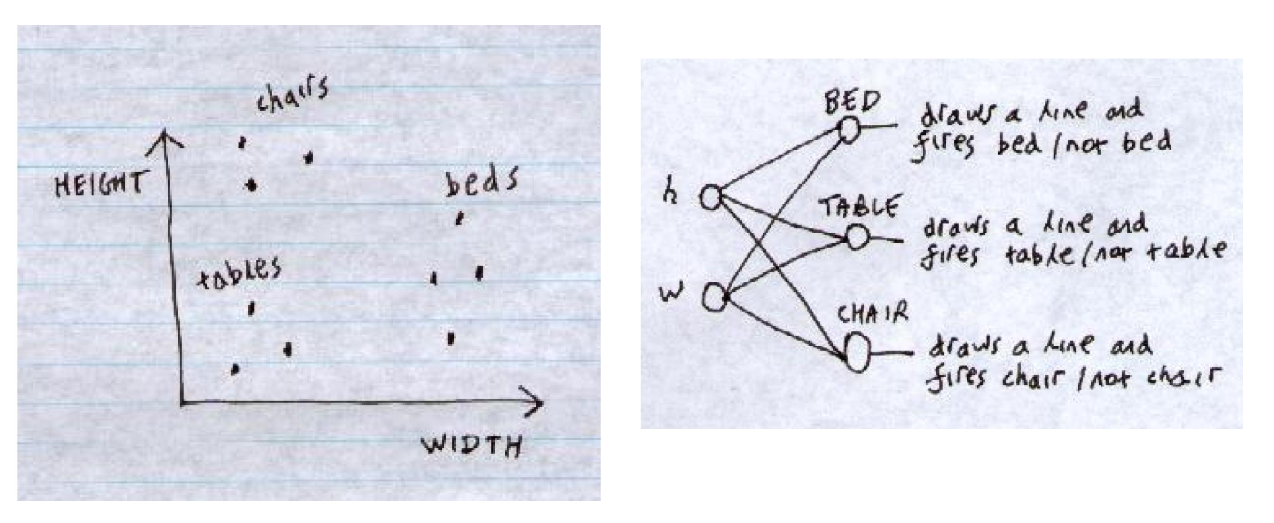 chairs
HEIGHT
beds
tables
WIDTH
BED
draws a line and
fires bed / not bed
h
TABLE
draws a line and
fires table / not table
w
CHAIR
draws a line and
fires chair / not chair